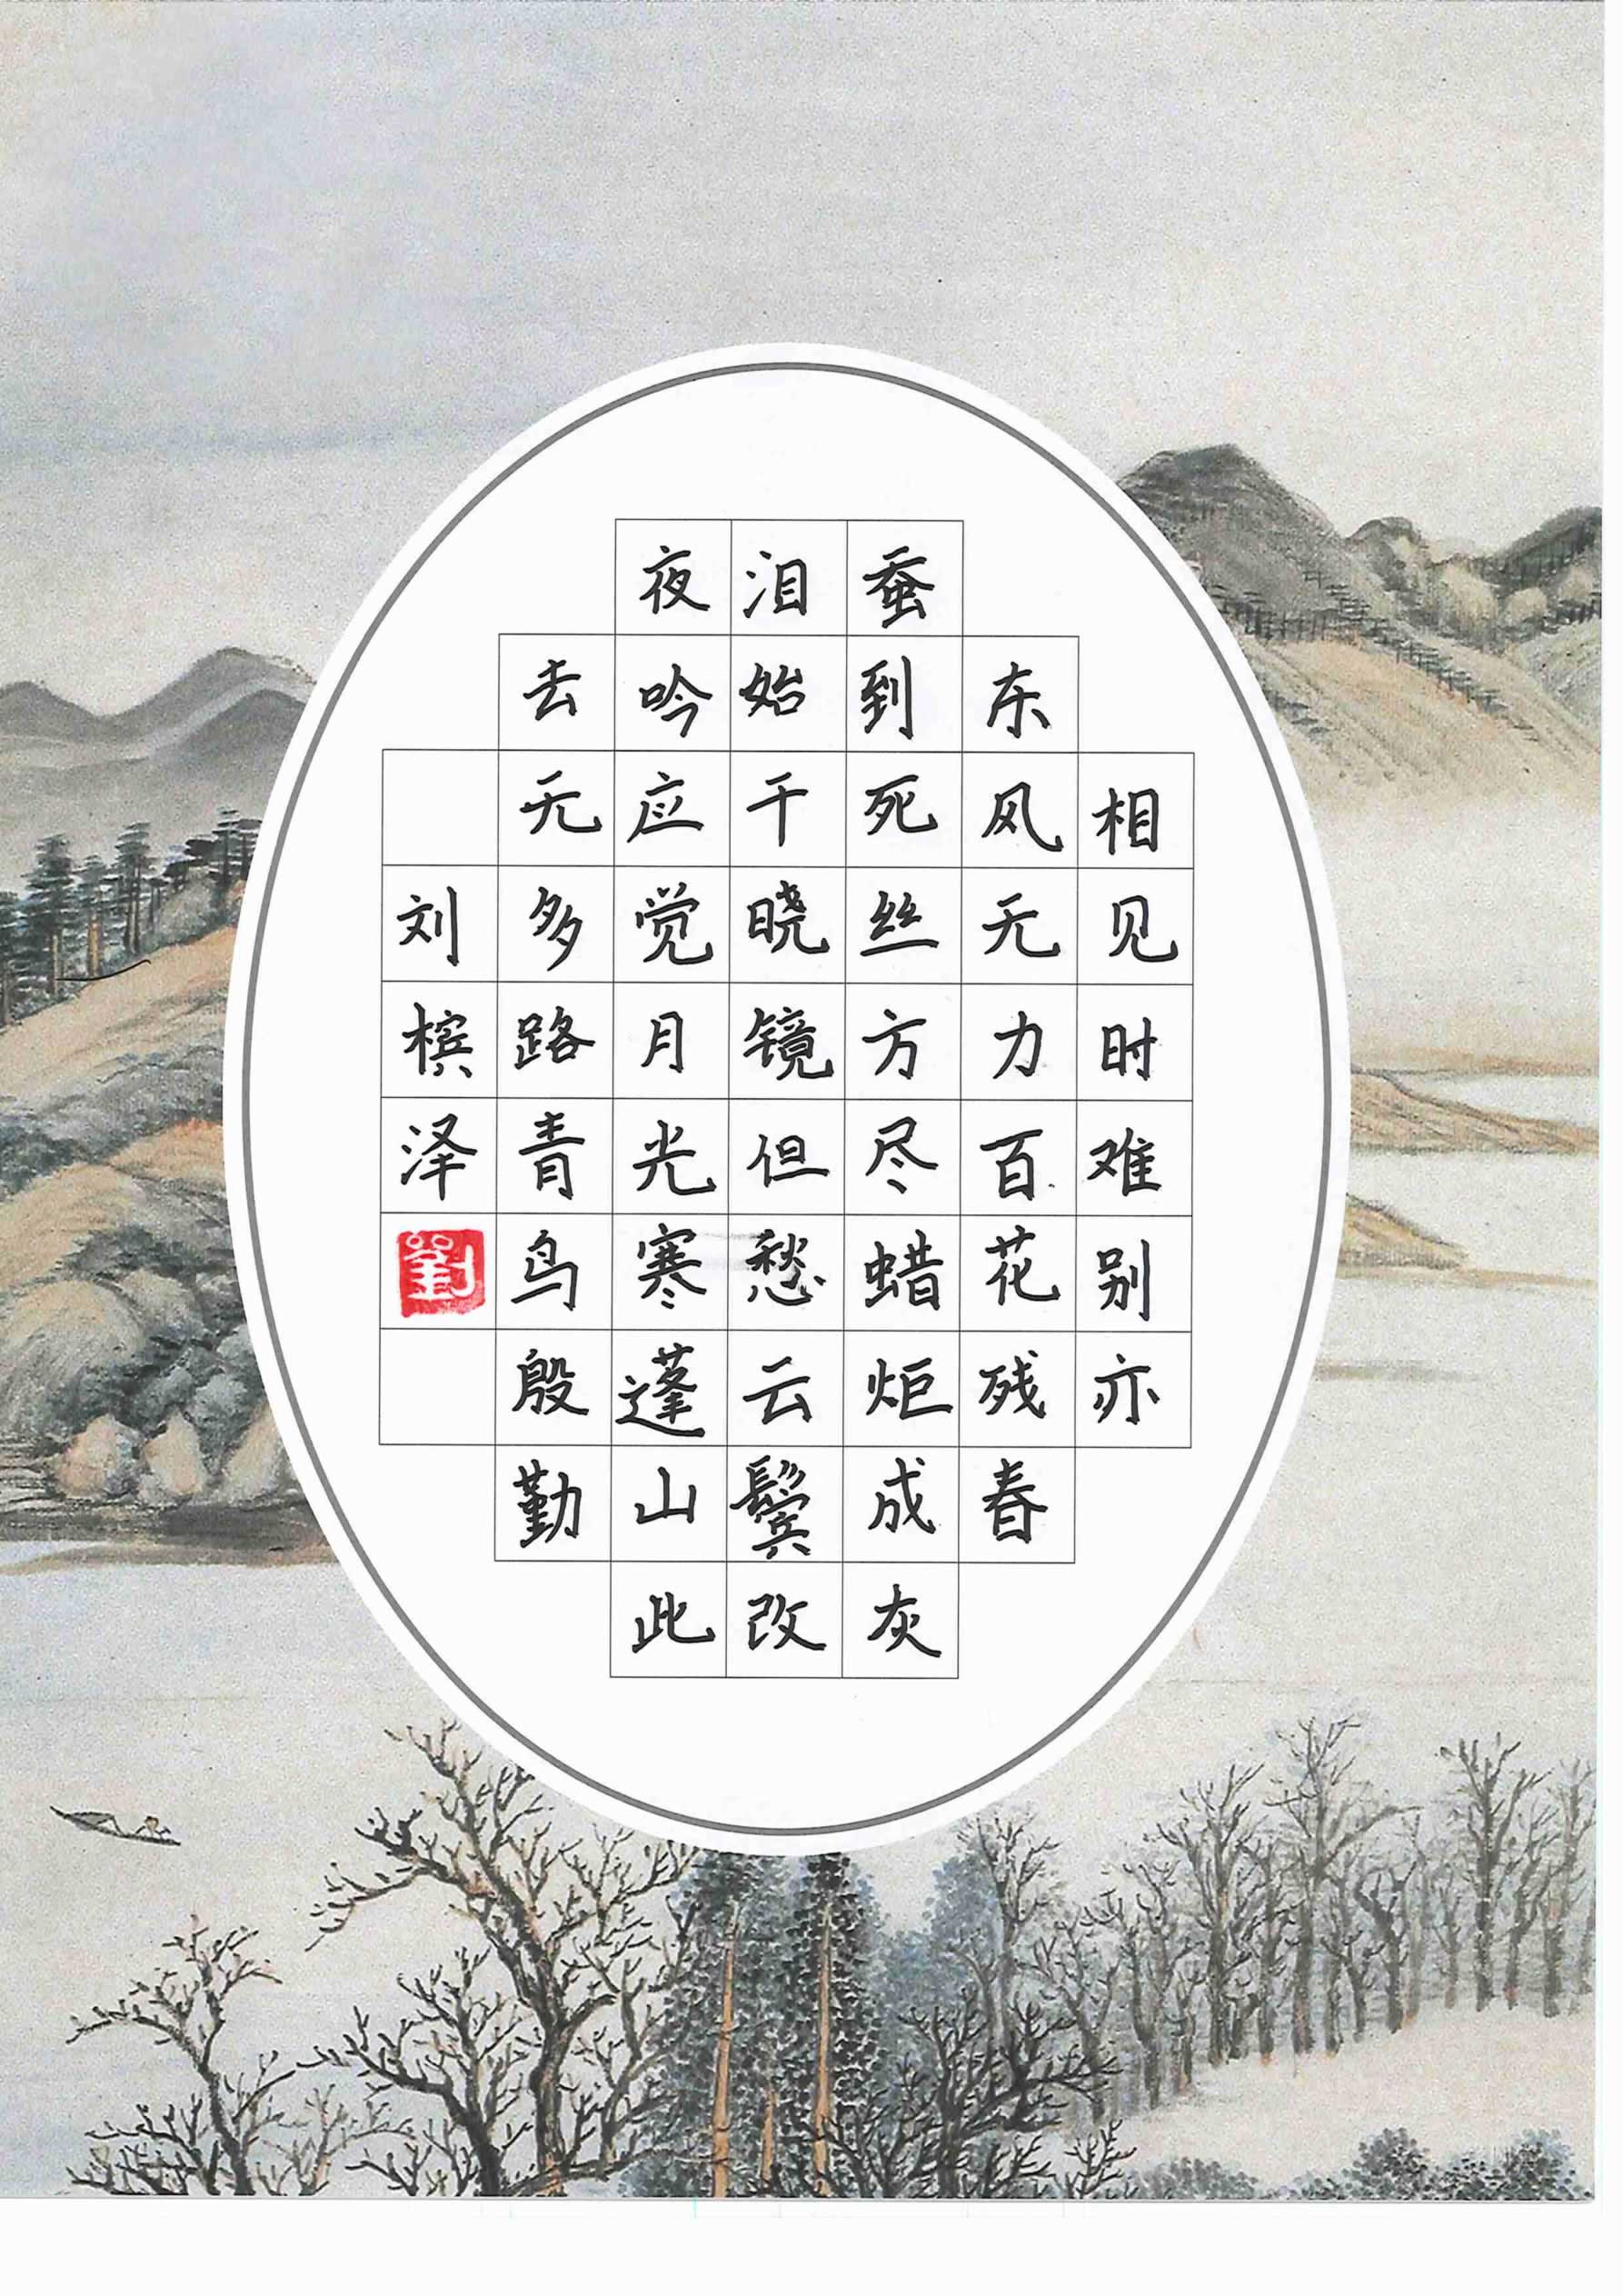 相见时难别亦
东风无力百花残春
蚕到死丝方尽蜡炬成灰
泪始干晓镜但愁云鬓改
夜吟应觉月光寒蓬山此
去无多路青鸟殷勤
刘槟泽
劉